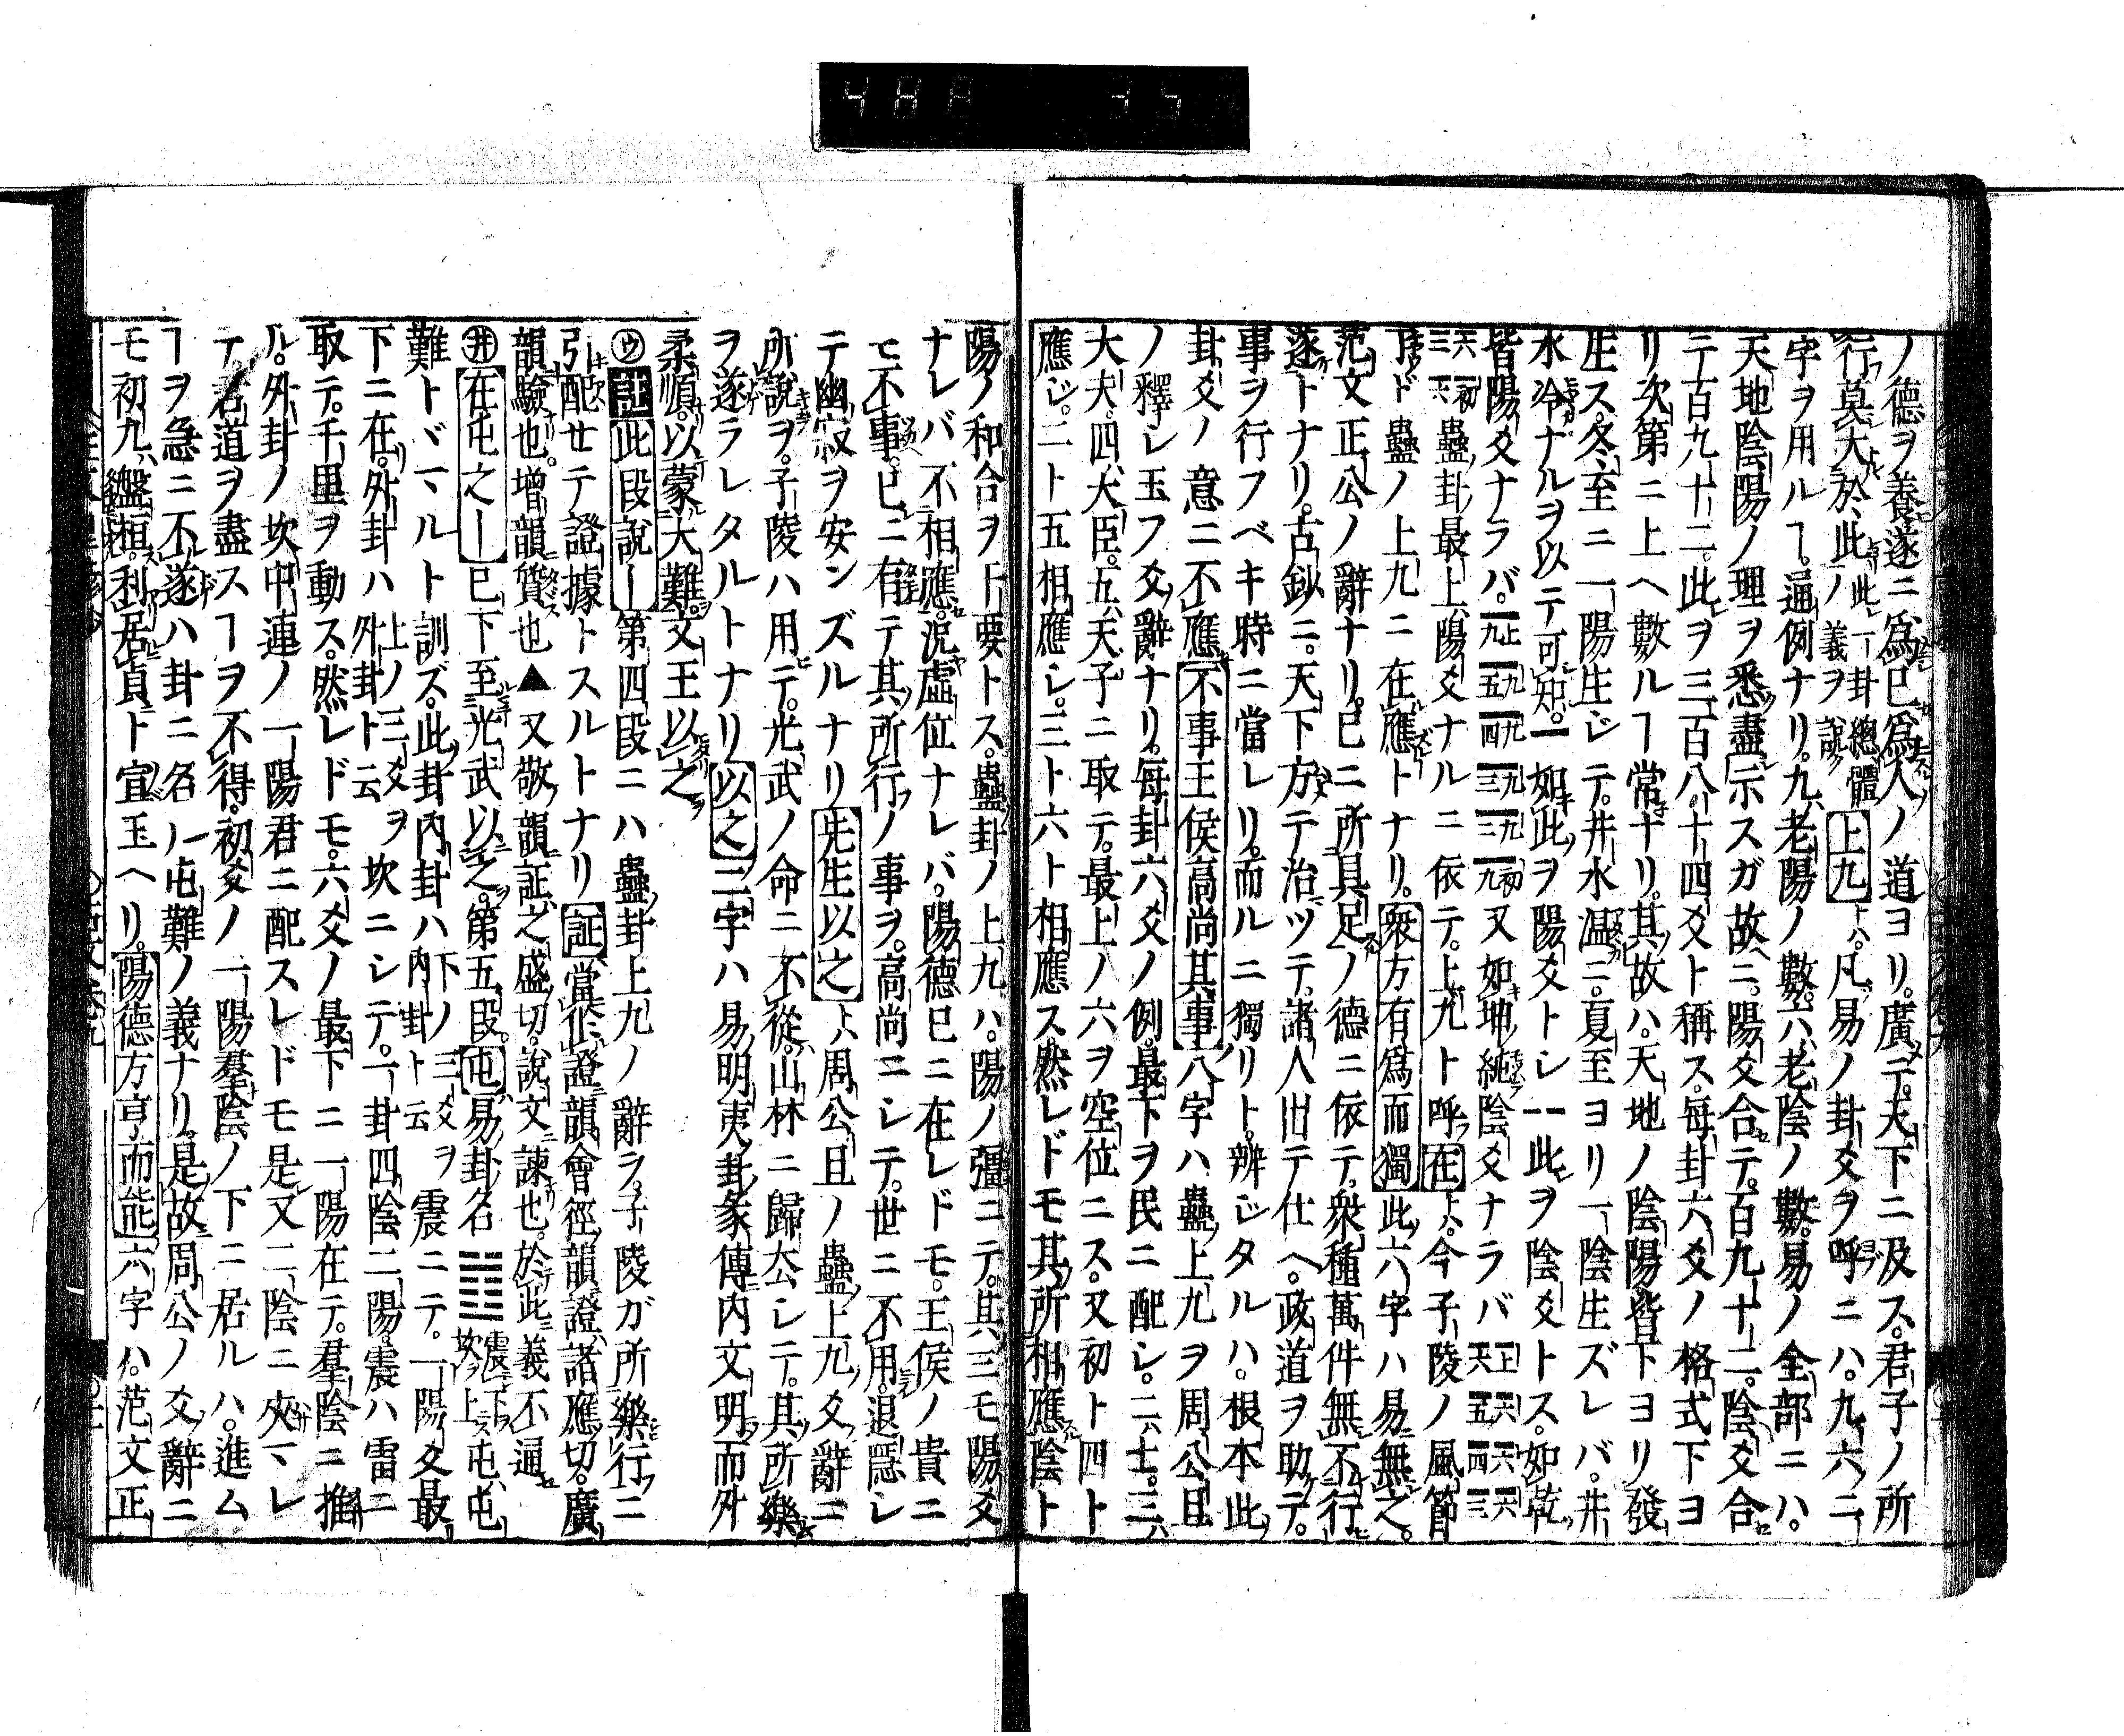 ノ德ヲ養遂ニ爲已爲人ノ道ヨリ廣テ。天下ニ及ス。君子ノ所
行莫大於此此一卦總體ノ義ヲ說 上九ヨハ。凡易ノ卦爻ヲ呼ニハ。九六二
字ヲ用ルヿ。通例ナリ。九老陽ノ數。六老陰ノ數。易ノ全部ニハ。
天地陰陽ノ理ヲ悉盡示スガ故ニ。陽爻合テ。百九十二。陰爻合
テ百九十二。此ヲ三百八十四爻ト稱ス。每卦六爻ノ格式下ヨ
リ次第ニ上ヘ數ルヿ常ナリ。其故ハ。天地ノ陰陽。皆下ヨリ發
生ス。冬至ニ一陽生ジテ。井水温ニ。夏至ヨリ一陰生ズレバ。井
水冷ナルヲ以テ可知。⚊如此ヲ陽爻トシ⚋此ヲ陰爻トス。如乾
皆陽爻ナラバ。上九九五九四九三九二初九又如坤純陰爻ナラバ上六六五六四六三
六二初六蠱卦最上陽爻ナルニ依テ。上九ト呼 在ヨハ。今子陵ノ風節
丁ド蠱ノ上九ニ在應トナリ。衆方有爲而獨此六字ハ易無之。
范文正公ノ辭ナリ。已ニ所具足ノ德ニ依テ。衆種萬件無不行
遂トナリ。古鈔ニ。天下方テ治ツテ。諸人出テ仕ヘ。政道ヲ助テ。
事ヲ行フベキ時ニ當レリ。而ルニ獨リト。辨ジタルハ。根本此
卦爻ノ意ニ不應 不事王侯高尚其事八字ハ蠱上九ヲ周公旦
ノ釋レ玉フ爻辭ナリ。每卦六爻ノ例。最下ヲ民ニ配シ。二士。三ハ
大夫。四大臣。五天子ニ取テ。最上ノ六ヲ空位ニス。又初ト四ト
應ジ。二ト五相應シ。三ト六ト相應ス。然レドモ其所相應陰ト
陽ノ和合ヲ𠄎要トス。蠱卦ノ上九ハ。陽ノ彊ニテ。其三モ陽爻
ナレバ不相應。況虛位ナレバ。陽德已ニ在レドモ。王侯ノ貴ニ
モ不事。已ニ有テ其所行ノ事ヲ。高尚ニシテ。世ニ不用。退隱シ
テ幽寂ヲ安ンズルナリ 先生以之ヨハ周公旦ノ蠱上九爻辭ニ
所說ヲ。子陵ハ用テ。光武ノ命ニ不從。山林ニ歸厺シテ。其所樂
ヲ遂ラレタルトナリ 以之二字ハ易明夷卦彖傳內文明而外
柔順。以蒙大難。文王以之
㋒註此段說ー第四段ニハ蠱卦上九ノ辭ヲ。子陵ガ所樂行ニ
引配せテ證據トスルトナリ 証當作證韻會徑韻證諸應切。廣
韻驗也。增韻質也▲又敬韻証之盛切。說文諫也。於此義不通
㋤在屯之ー已下至光武以之。第五段。屯易卦名䷂震下坎上屯。屯
難トヾマルト訓ズ。此卦內卦ハ下ノ三爻ヲ內卦ト云震ニテ。一陽爻最
下ニ在。外卦ハ上ノ三爻ヲ外卦ト云坎ニシテ。一卦四陰二陽。震ハ雷ニ
取テ。千里ヲ動ス。然レドモ。六爻ノ最下ニ一陽在テ。羣陰ニ推
ル。外卦ノ坎中連ノ一陽君ニ配スレドモ是又二陰ニ夾マレ
テ。君道ヲ盡スヿヲ不得。初爻ノ一陽羣陰ノ下ニ居ルハ。進ム
ヿヲ急ニ不遂ハ卦ニ名ノ屯難ノ義ナリ。是故周公ノ爻辭ニ
モ初九盤桓。利居貞ト宣玉ヘリ。陽德方亨而能六字ハ。范文正